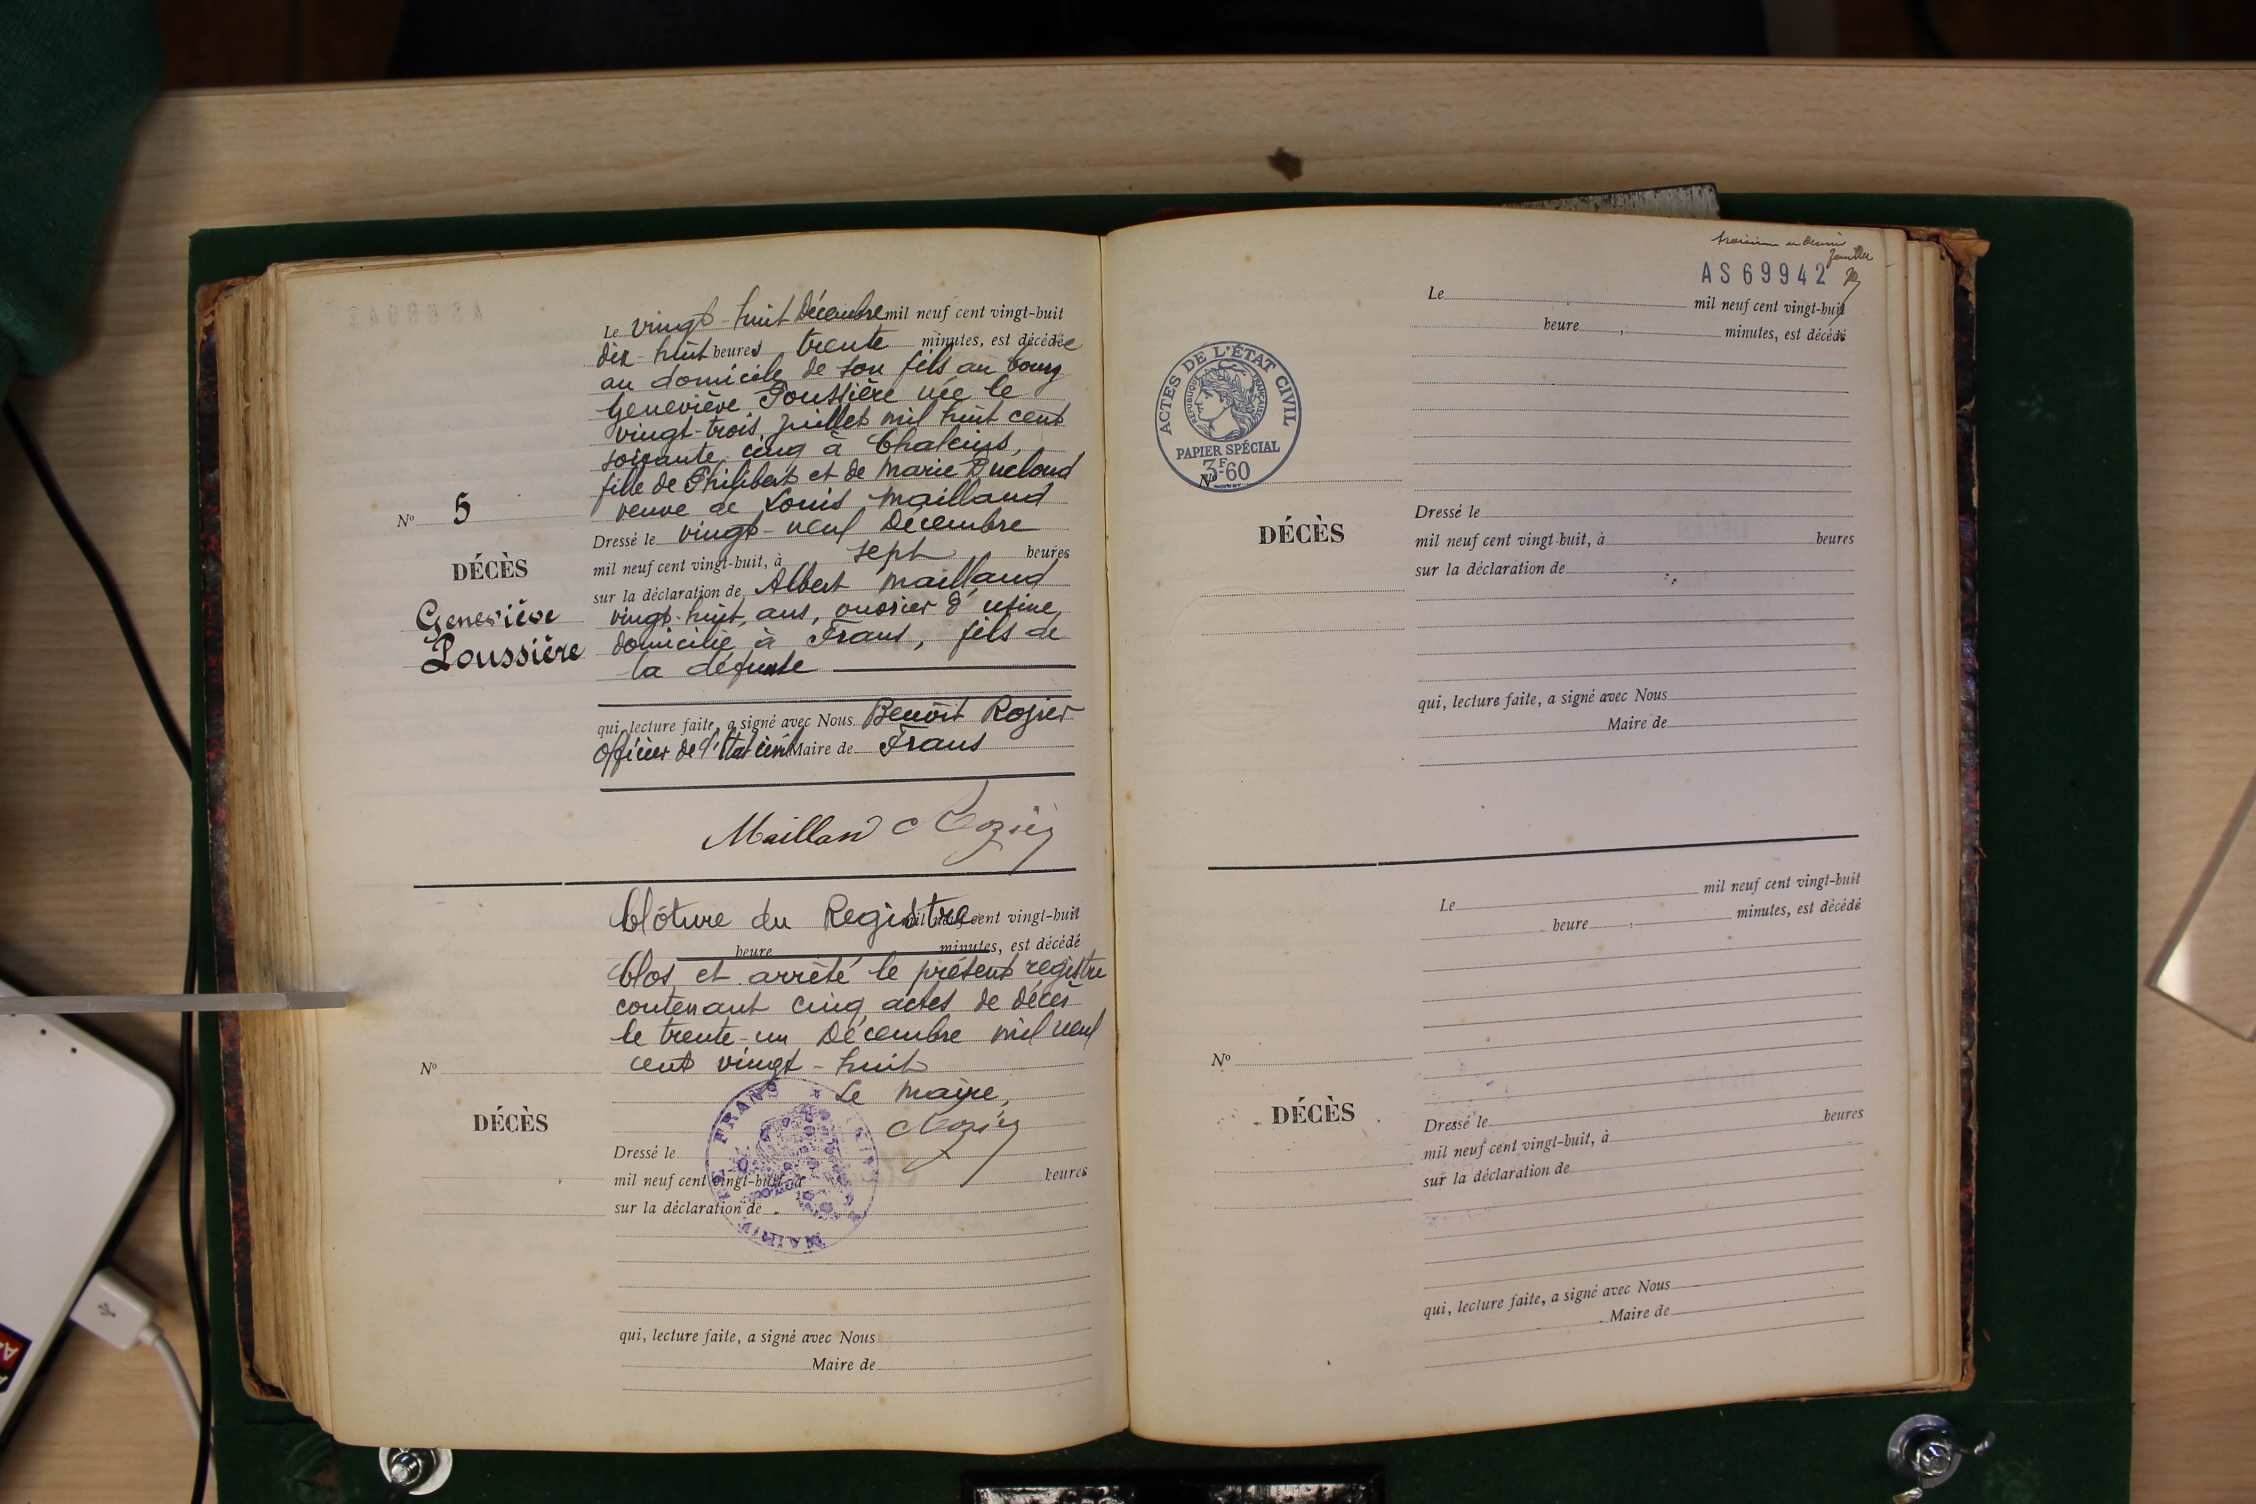 Le vingt-huit Décembre mil neuf cent vingt-huit
dix-huit heures trente minutes, est décédée
au domicile de son fils au bourg
Geneviève Poussière née le
vingt-trois Juillet mil huit cent
soixante cinq à Chaleins,
fille de Philibert et de Marie Ducloud
veuve de Louis Mailland
Dressé le vingt-neuf Décembre
mil neuf cent vingt-huit, à sept heures
sur la déclaration de Albert Mailland
vingt-huit ans, ouvrier d'usine,
domicilié à Frans, fils de
la défunte
qui, lecture faite, a signé avec Nous Benoît Rozier
Officier de l'Etat civil Maire de Frans
Nº 5
DÉCÈS
Geneviève
Poussière
Mailland Rozier
Clôture du Registre mil neuf cent vingt-huit
heure minutes, est décédé
Clos et arrêté le présent registre
contenant cinq actes de décès
le trente-un Décembre mil neuf
cent vingt-huit
Le Maire,
Rozier
MAIRIE DE FRANS
Nº
DÉCÈS
Dressé le
mil neuf cent vingt-huit, à heures
sur la déclaration de
qui, lecture faite, a signé avec Nous
Maire de
AS 69942
Le mil neuf cent vingt-huit
heure, minutes, est décédé
ACTES DE L'ÉTAT CIVIL
RÉPUBLIQUE FRANÇAISE
PAPIER SPÉCIAL
3F.60
Nº
DÉCÈS
Dressé le
mil neuf cent vingt-huit, à heures
sur la déclaration de
qui, lecture faite, a signé avec Nous
Maire de
Le mil neuf cent vingt-huit
heure, minutes, est décédé
Nº
DÉCÈS
Dressé le heures
mil neuf cent vingt-huit, à
sur la déclaration de
qui, lecture faite, a signé avec Nous
Maire de